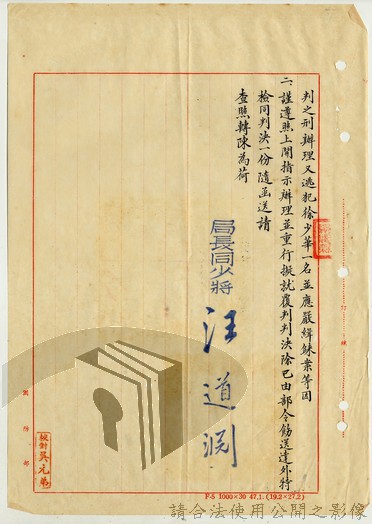 判之刑辦理又逃犯徐少華一名並應嚴緝歸案等因
二、謹遵照上開指示辦理並重行擬就覆判判決除已由部令飭送達外特
檢同判決一份隨函送請
查照轉陳為荷
局長同少將
汪道淵
校對吳元弟
F-5 1000×30 47.1. (19.2×27.2)
請合法使用公開之影像